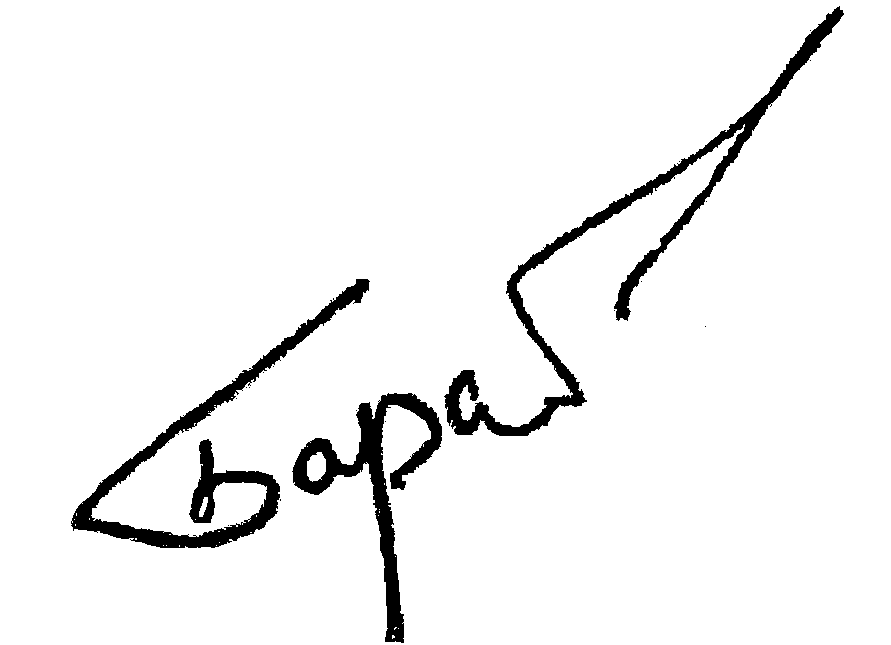 Бараб